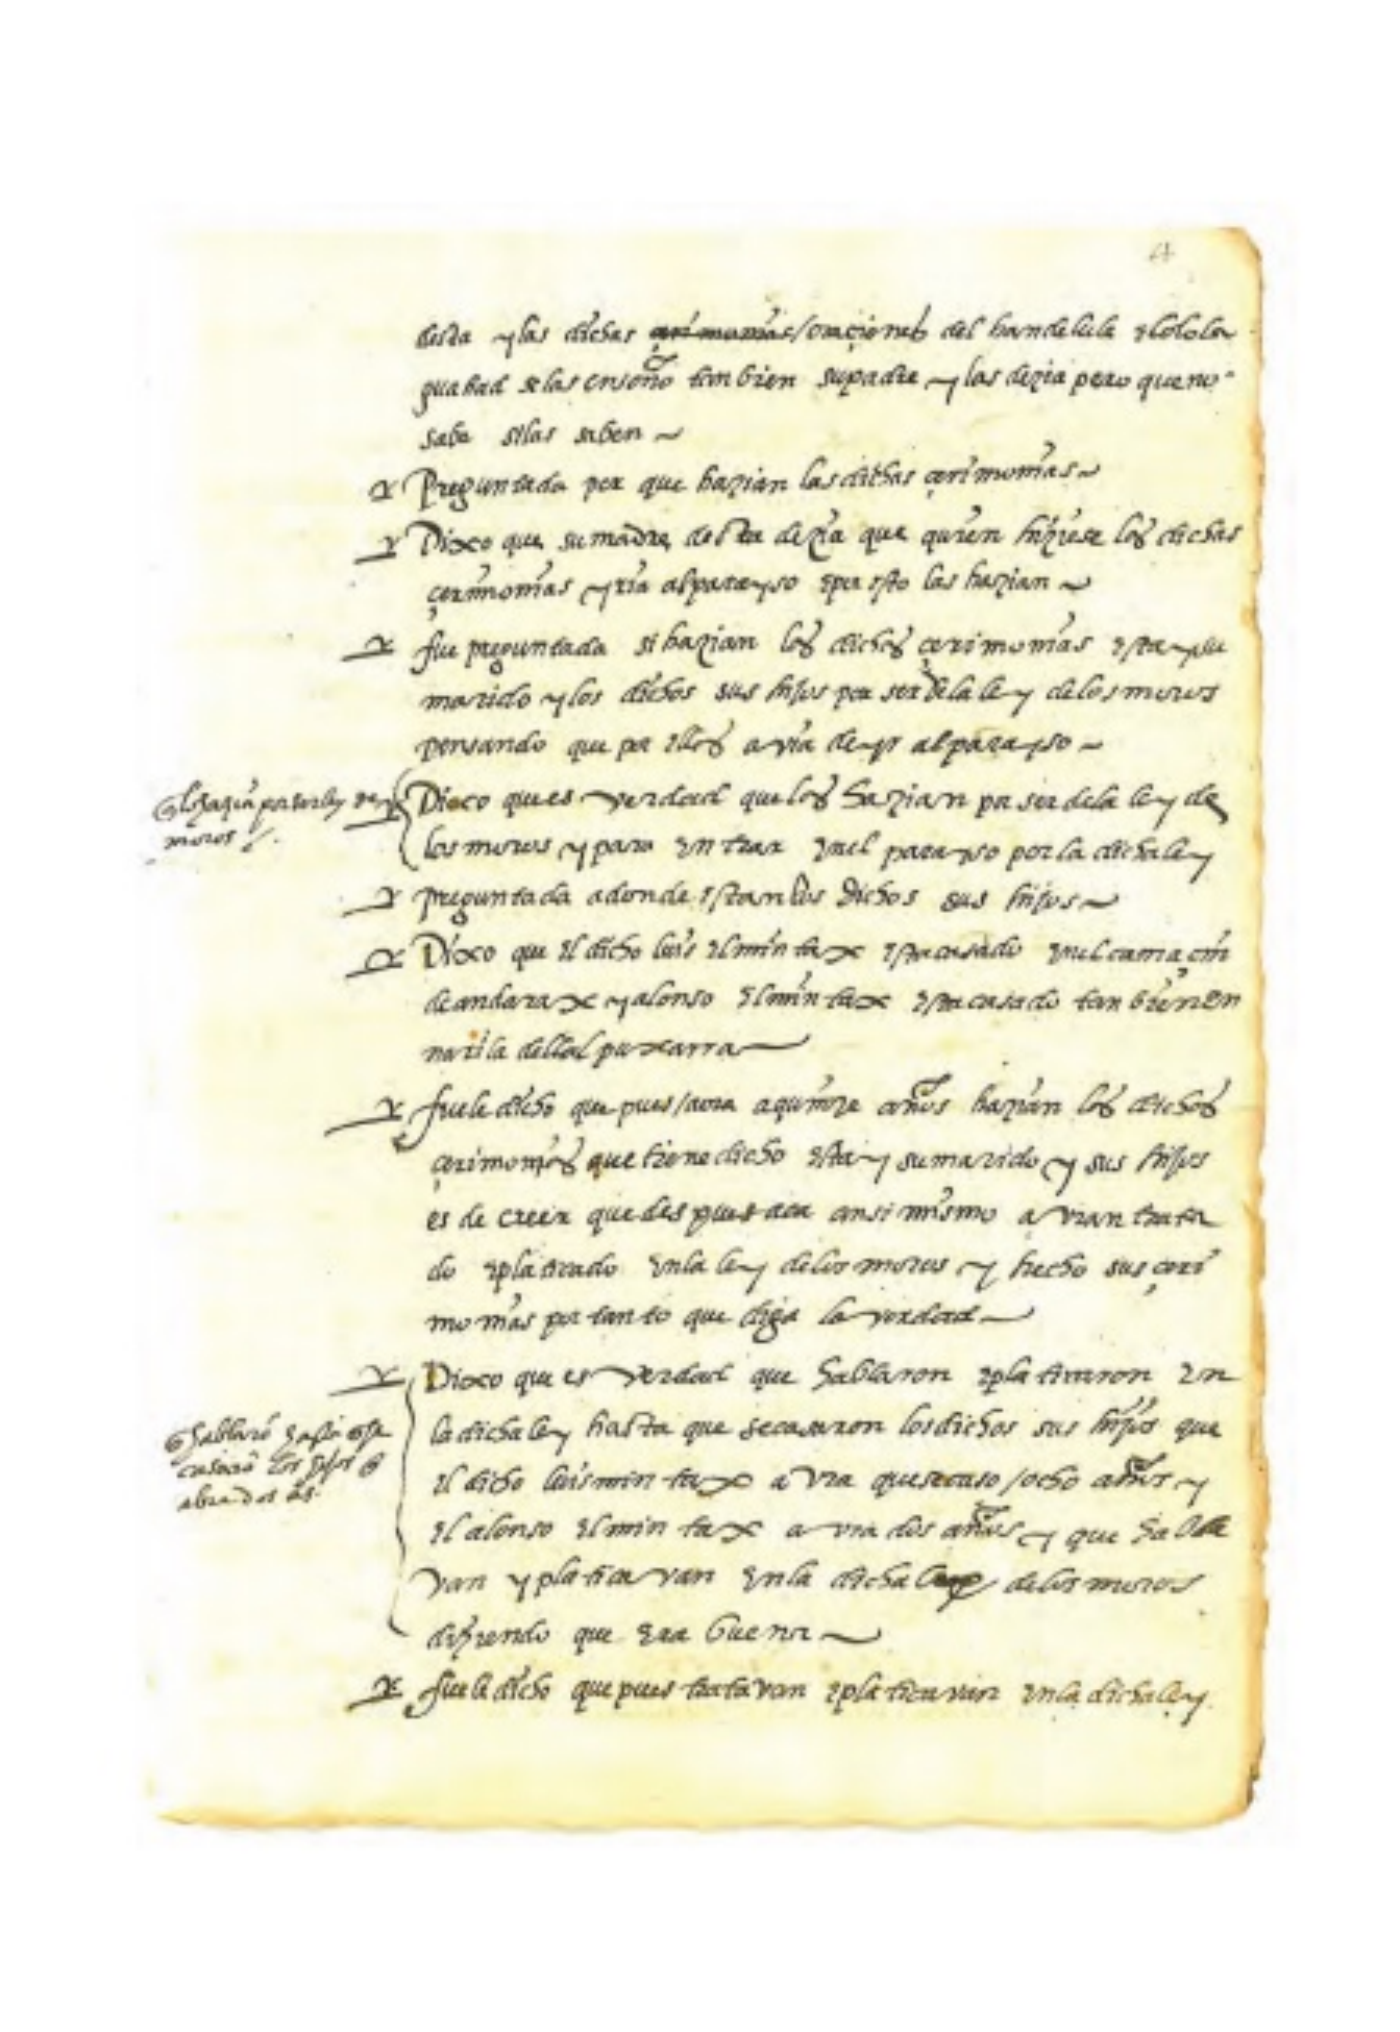 4
desta y las dichas çerimonias / oraçiones del handelule e lolola
guahad se las enseño tambien su padre y las dezia pero que no
sabe si las saben
Preguntada por que hazian las dichas çerimonias
Dixo que su madre desta dezia que quien hiziese las dichas
çerimonias yria al parayso e por esto las hazian
fue preguntada si hazian las dichas çerimonias esta y su
marido y los dichos sus hijos por ser de la ley de los moros
pensando que por ellas avia de yr al parayso
Dixo que es verdad que las hazian por ser de la ley de
los moros y para entrar en el parayso por la dicha ley
moros
preguntada adonde estan los dichos sus hijos
Dixo que el dicho luis el mintax esta casado en el camaçin
de andarax y alonso el mintax esta casado tambien en
narila del alpuxarra
fuele dicho que pues / aora a quinze años hazian las dichas
çerimonias que tiene dicho esta y su marido y sus hijos
es de creer que despues aca ansi mismo avian trata
do e platicado en la ley de los moros y hecho sus çeri
monias por tanto que diga la verdad
Dixo que es verdad que hablaron e platicaron en
la dicha ley hasta que se casaron los dichos sus hijos que
hablarō hasta q se
casarō los hijos q
abra dos as.
el dicho luis mintax avia que se caso / ocho años y
el alonso el mintax avia dos años y que habla
van y platicavan en la dicha ley de los moros
diziendo que era buena
fuele dicho que pues tratavan e platicavan en la dicha ley